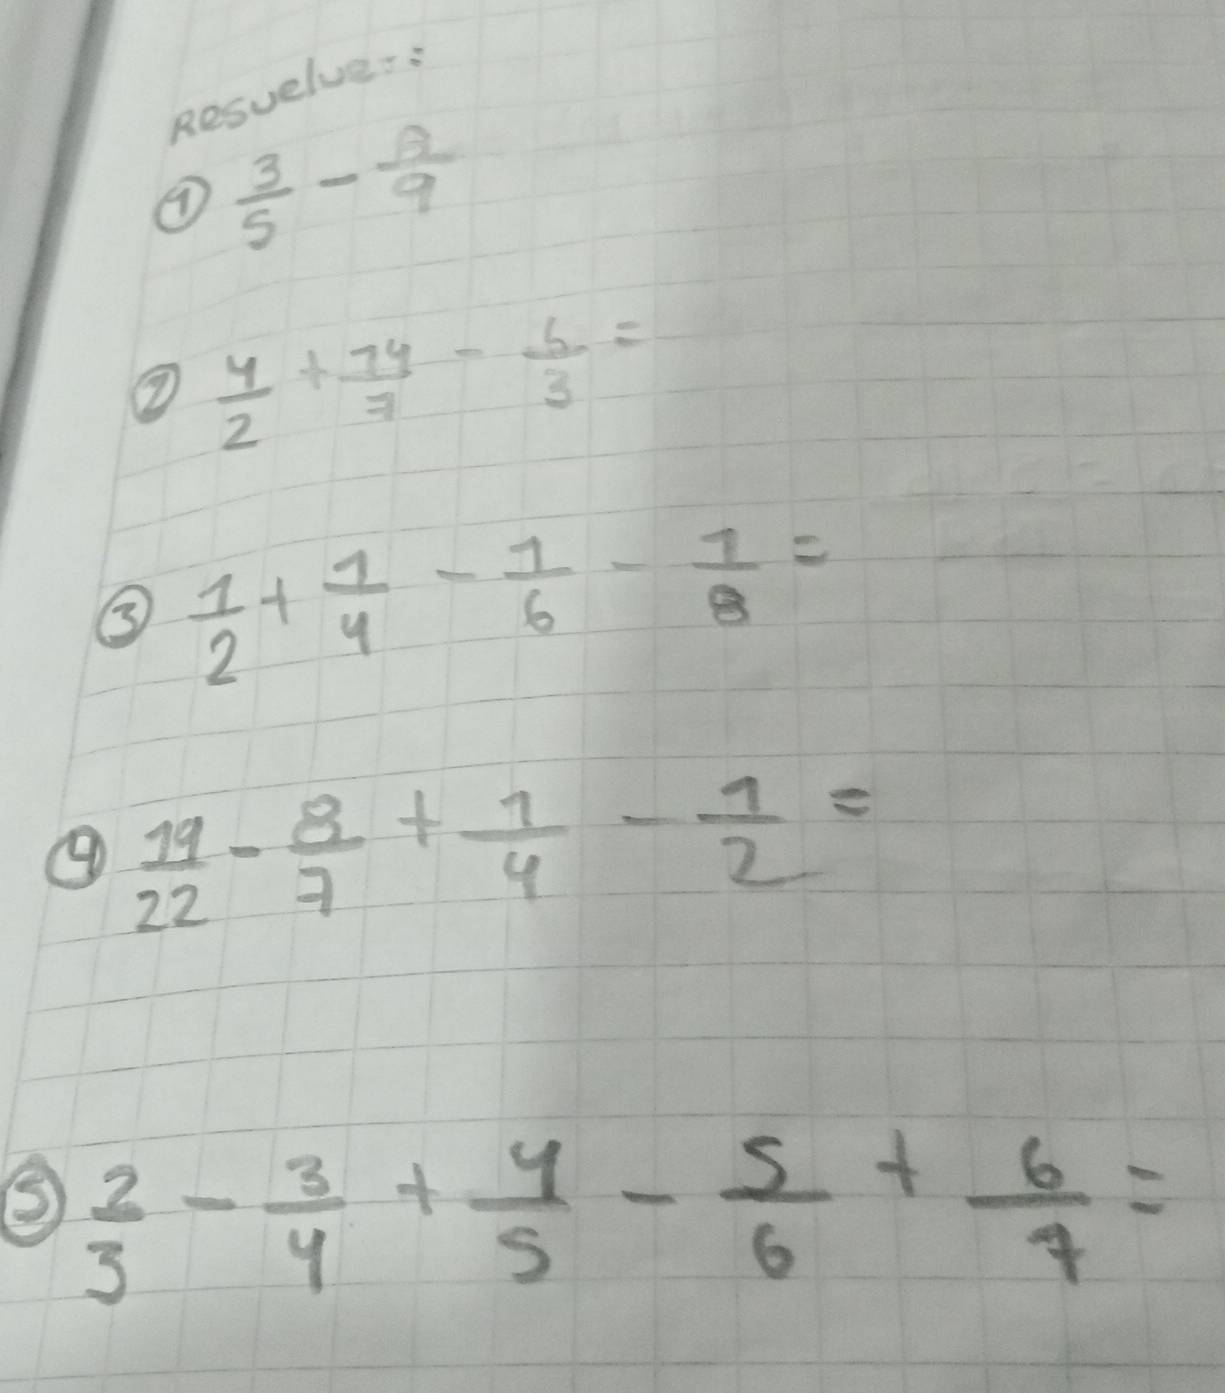 Resuelve::
① 3/5 - 8/9
② 4/2 + 14/7 - 6/3 =
③ 1/2 + 1/4 - 1/6 - 1/8 =
④ 19/22 - 8/7 + 1/4 - 1/2 =
⑤ 2/3 - 3/4 + 4/5 - 5/6 + 6/7 =